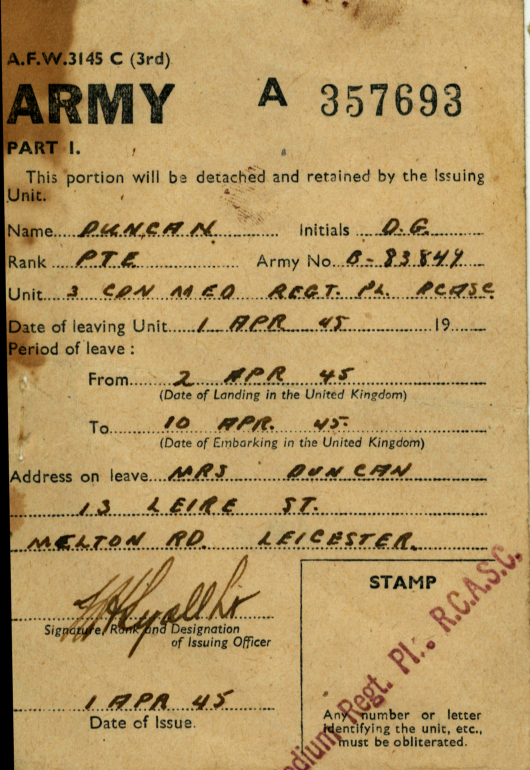 A.F.W.3145 C (3rd)
ARMY A 357693
PART I.
This portion will be detached and retained by the Issuing
Unit.
Name DUNCAN Initials D.G.
Rank PTE Army No. B-83849
Unit 3 CDN MED REGT. PL RCASC
Date of leaving Unit 1 APR 45 19
Period of leave :
From 2 APR 45
(Date of Landing in the United Kingdom)
To 10 APR. 45.
(Date of Embarking in the United Kingdom)
Address on leave MRS DUNCAN
13 LEIRE ST.
MELTON RD. LEICESTER.
Signature, Rank and Designation
of Issuing Officer
1 APR 45
Date of Issue.
STAMP
Regt. Pl., R.C.A.S.C.
Any number or letter
identifying the unit, etc.,
must be obliterated.